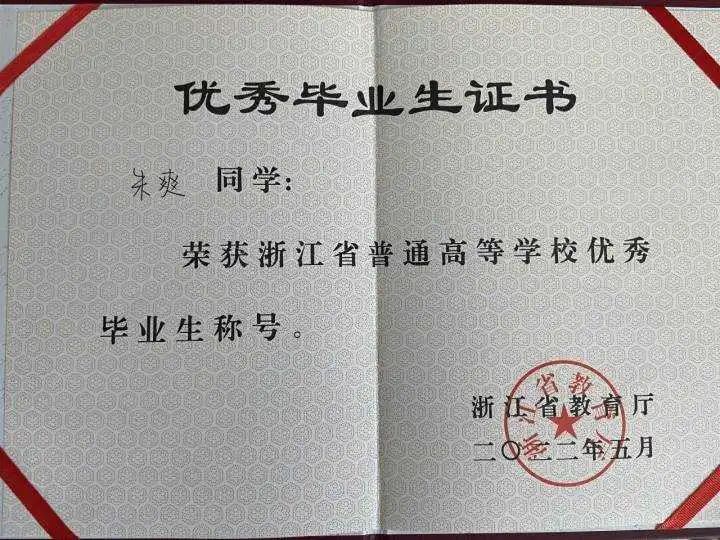 优秀毕业生证书
朱爽 同学:
荣获浙江省普通高等学校优秀
毕业生称号。
浙江省教育厅
二〇二二年五月
浙江省教育厅